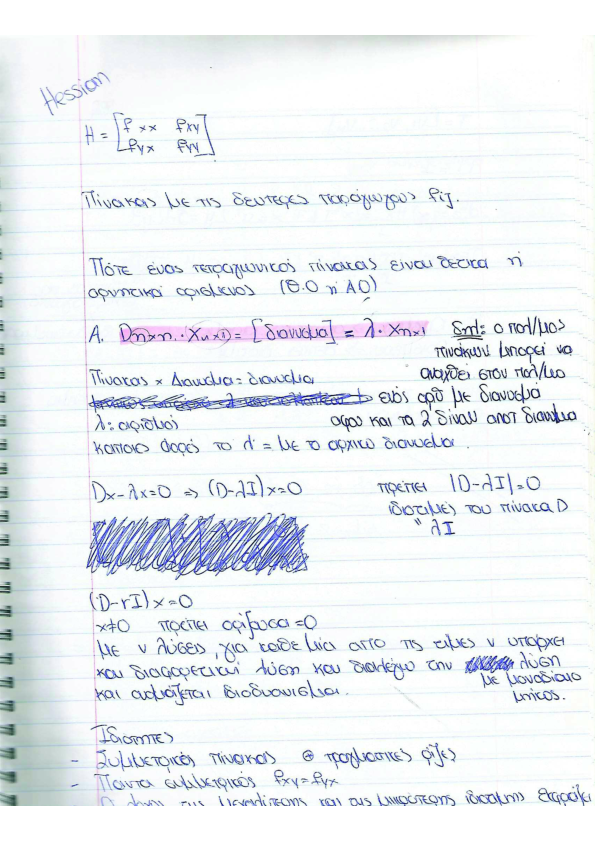 Hessian
H = [fxx fxy
fyx fyy]
Πίνακας με τις δεύτερες παράγωγους fij.
Πότε ένας τετραγωνικός πίνακας είναι θετικά ή
αρνητικά ορισμένος (Θ.Ο ή Α.Ο)
Α. Dn×n · Xn×1 = [διάνυσμα] = λ · Xn×1 δηλ: ο πολ/μος
πινάκων μπορεί να
Πίνακας × Διάνυσμα = διάνυσμα αναχθεί στον πολ/μο
ενός αρθ με διάνυσμα
λ: αριθμός αφου και τα 2 δίνουν αποτ διάνυσμα
κάποιες φορές το λ = με το αρχικό διάνυσμα.
Dx-λx=0 => (D-λI)x=0 πρέπει |D-λI|=0
ιδιοτιμές του πίνακα D
" λI
(D-rI)x=0
x≠0 πρέπει ορίζουσα =0
με ν λύσεις, για κάθε μία από τις τιμες ν υπάρχει
και διαφορετική λύση και διαλέγω την λύση
με μοναδιαίο
και ονομάζεται ιδιοδυάνισμα. μήκος.
Ιδιότητες
- Συμμετρικός πίνακας ⊕ πραγματικές ρίζες
- Πάντα συμμετρικός fxy=fyx
της μεγαλύτερης και της μικρότερης ιδιοτιμής